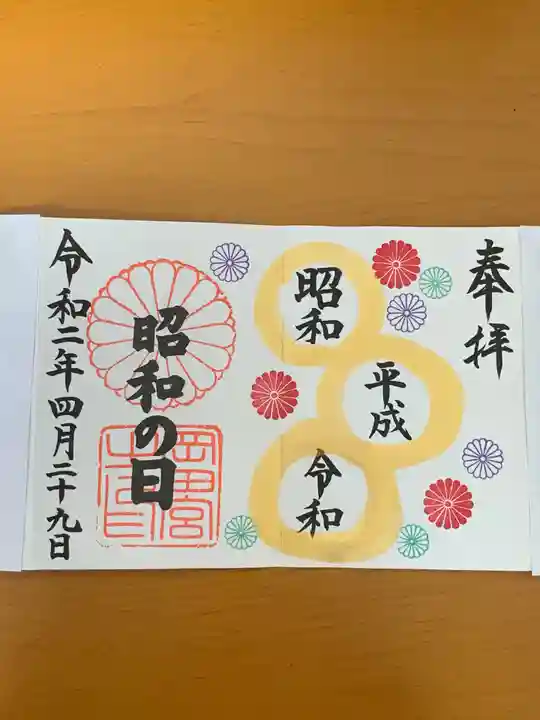 奉拝
昭和
平成
令和
昭和の日
岡田宮
令和二年四月二十九日